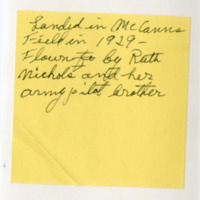 Landed in McCanns
Field in 1929 -
Flown to by Ruth
Nichols and her
army pilot brother